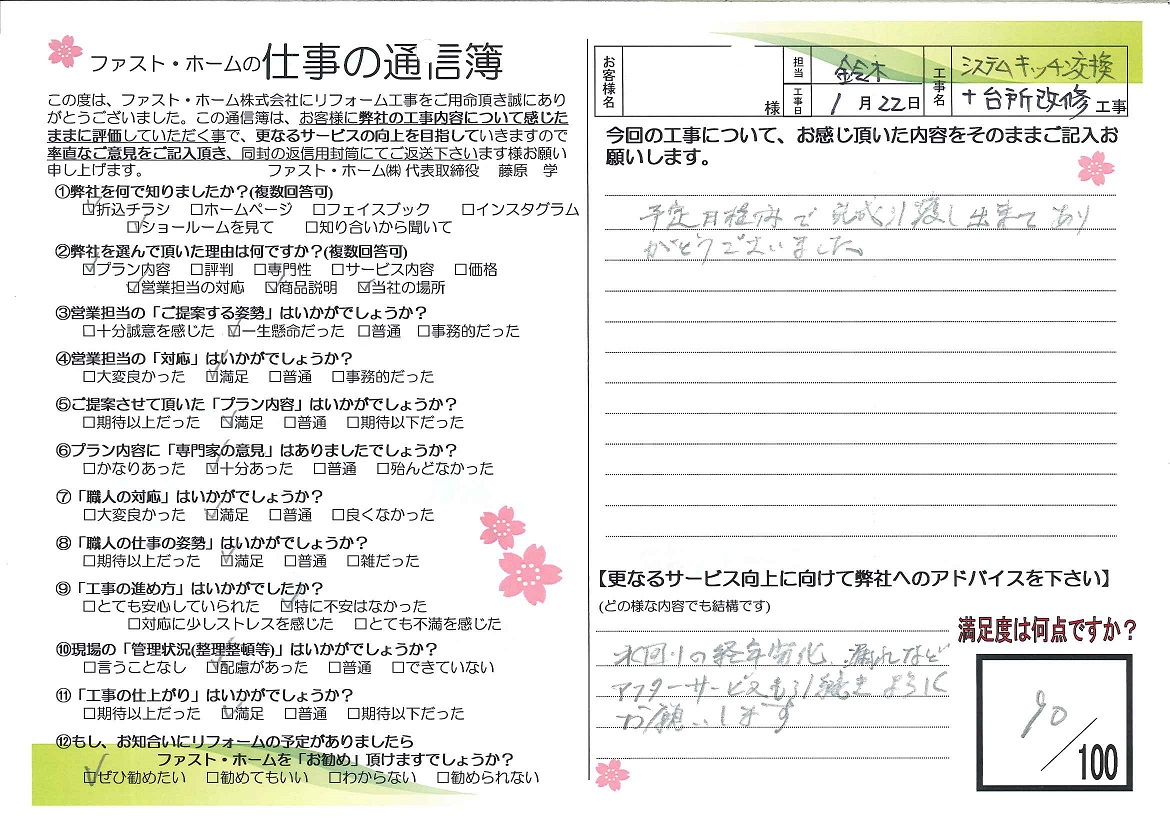 ファスト・ホームの仕事の通信簿
この度は、ファスト・ホーム株式会社にリフォーム工事をご用命頂き誠にあり
がとうございました。この通信簿は、お客様に弊社の工事内容について感じた
ままに評価していただく事で、更なるサービスの向上を目指していきますので
率直なご意見をご記入頂き、同封の返信用封筒にてご返送下さいます様お願い
申し上げます。 ファスト・ホーム㈱ 代表取締役 藤原 学
①弊社を何で知りましたか?(複数回答可)
☑折込チラシ □ホームページ □フェイスブック □インスタグラム
☑ショールームを見て □知り合いから聞いて
②弊社を選んで頂いた理由は何ですか?(複数回答可)
☑プラン内容 □評判 □専門性 □サービス内容 □価格
☑営業担当の対応 ☑商品説明 ☑当社の場所
③営業担当の「ご提案する姿勢」はいかがでしょうか?
□十分誠意を感じた ☑一生懸命だった □普通 □事務的だった
④営業担当の「対応」はいかがでしょうか?
□大変良かった ☑満足 □普通 □事務的だった
⑤ご提案させて頂いた「プラン内容」はいかがでしょうか?
□期待以上だった ☑満足 □普通 □期待以下だった
⑥プラン内容に「専門家の意見」はありましたでしょうか?
□かなりあった ☑十分あった □普通 □殆んどなかった
⑦「職人の対応」はいかがでしょうか?
□大変良かった ☑満足 □普通 □良くなかった
⑧「職人の仕事の姿勢」はいかがでしょうか?
□期待以上だった ☑満足 □普通 □雑だった
⑨「工事の進め方」はいかがでしたか?
□とても安心していられた ☑特に不安はなかった
□対応に少しストレスを感じた □とても不満を感じた
⑩現場の「管理状況(整理整頓等)」はいかがでしょうか?
□言うことなし ☑配慮があった □普通 □できていない
⑪「工事の仕上がり」はいかがでしょうか?
□期待以上だった ☑満足 □普通 □期待以下だった
⑫もし、お知合いにリフォームの予定がありましたら
ファスト・ホームを「お勧め」頂けますでしょうか?
☑ぜひ勧めたい □勧めてもいい □わからない □勧められない
お客様名 様 担当 鈴木 工事名 システムキッチン交換
工事日 1月22日 +台所改修 工事
今回の工事について、お感じ頂いた内容をそのままご記入お
願いします。
予定日程内で完成引渡し出来てあり
がとうございました。
【更なるサービス向上に向けて弊社へのアドバイスを下さい】
(どの様な内容でも結構です)
水回りの経年劣化、漏れなど
アフターサービスも引続きよろしく
お願いします
満足度は何点ですか?
90/100